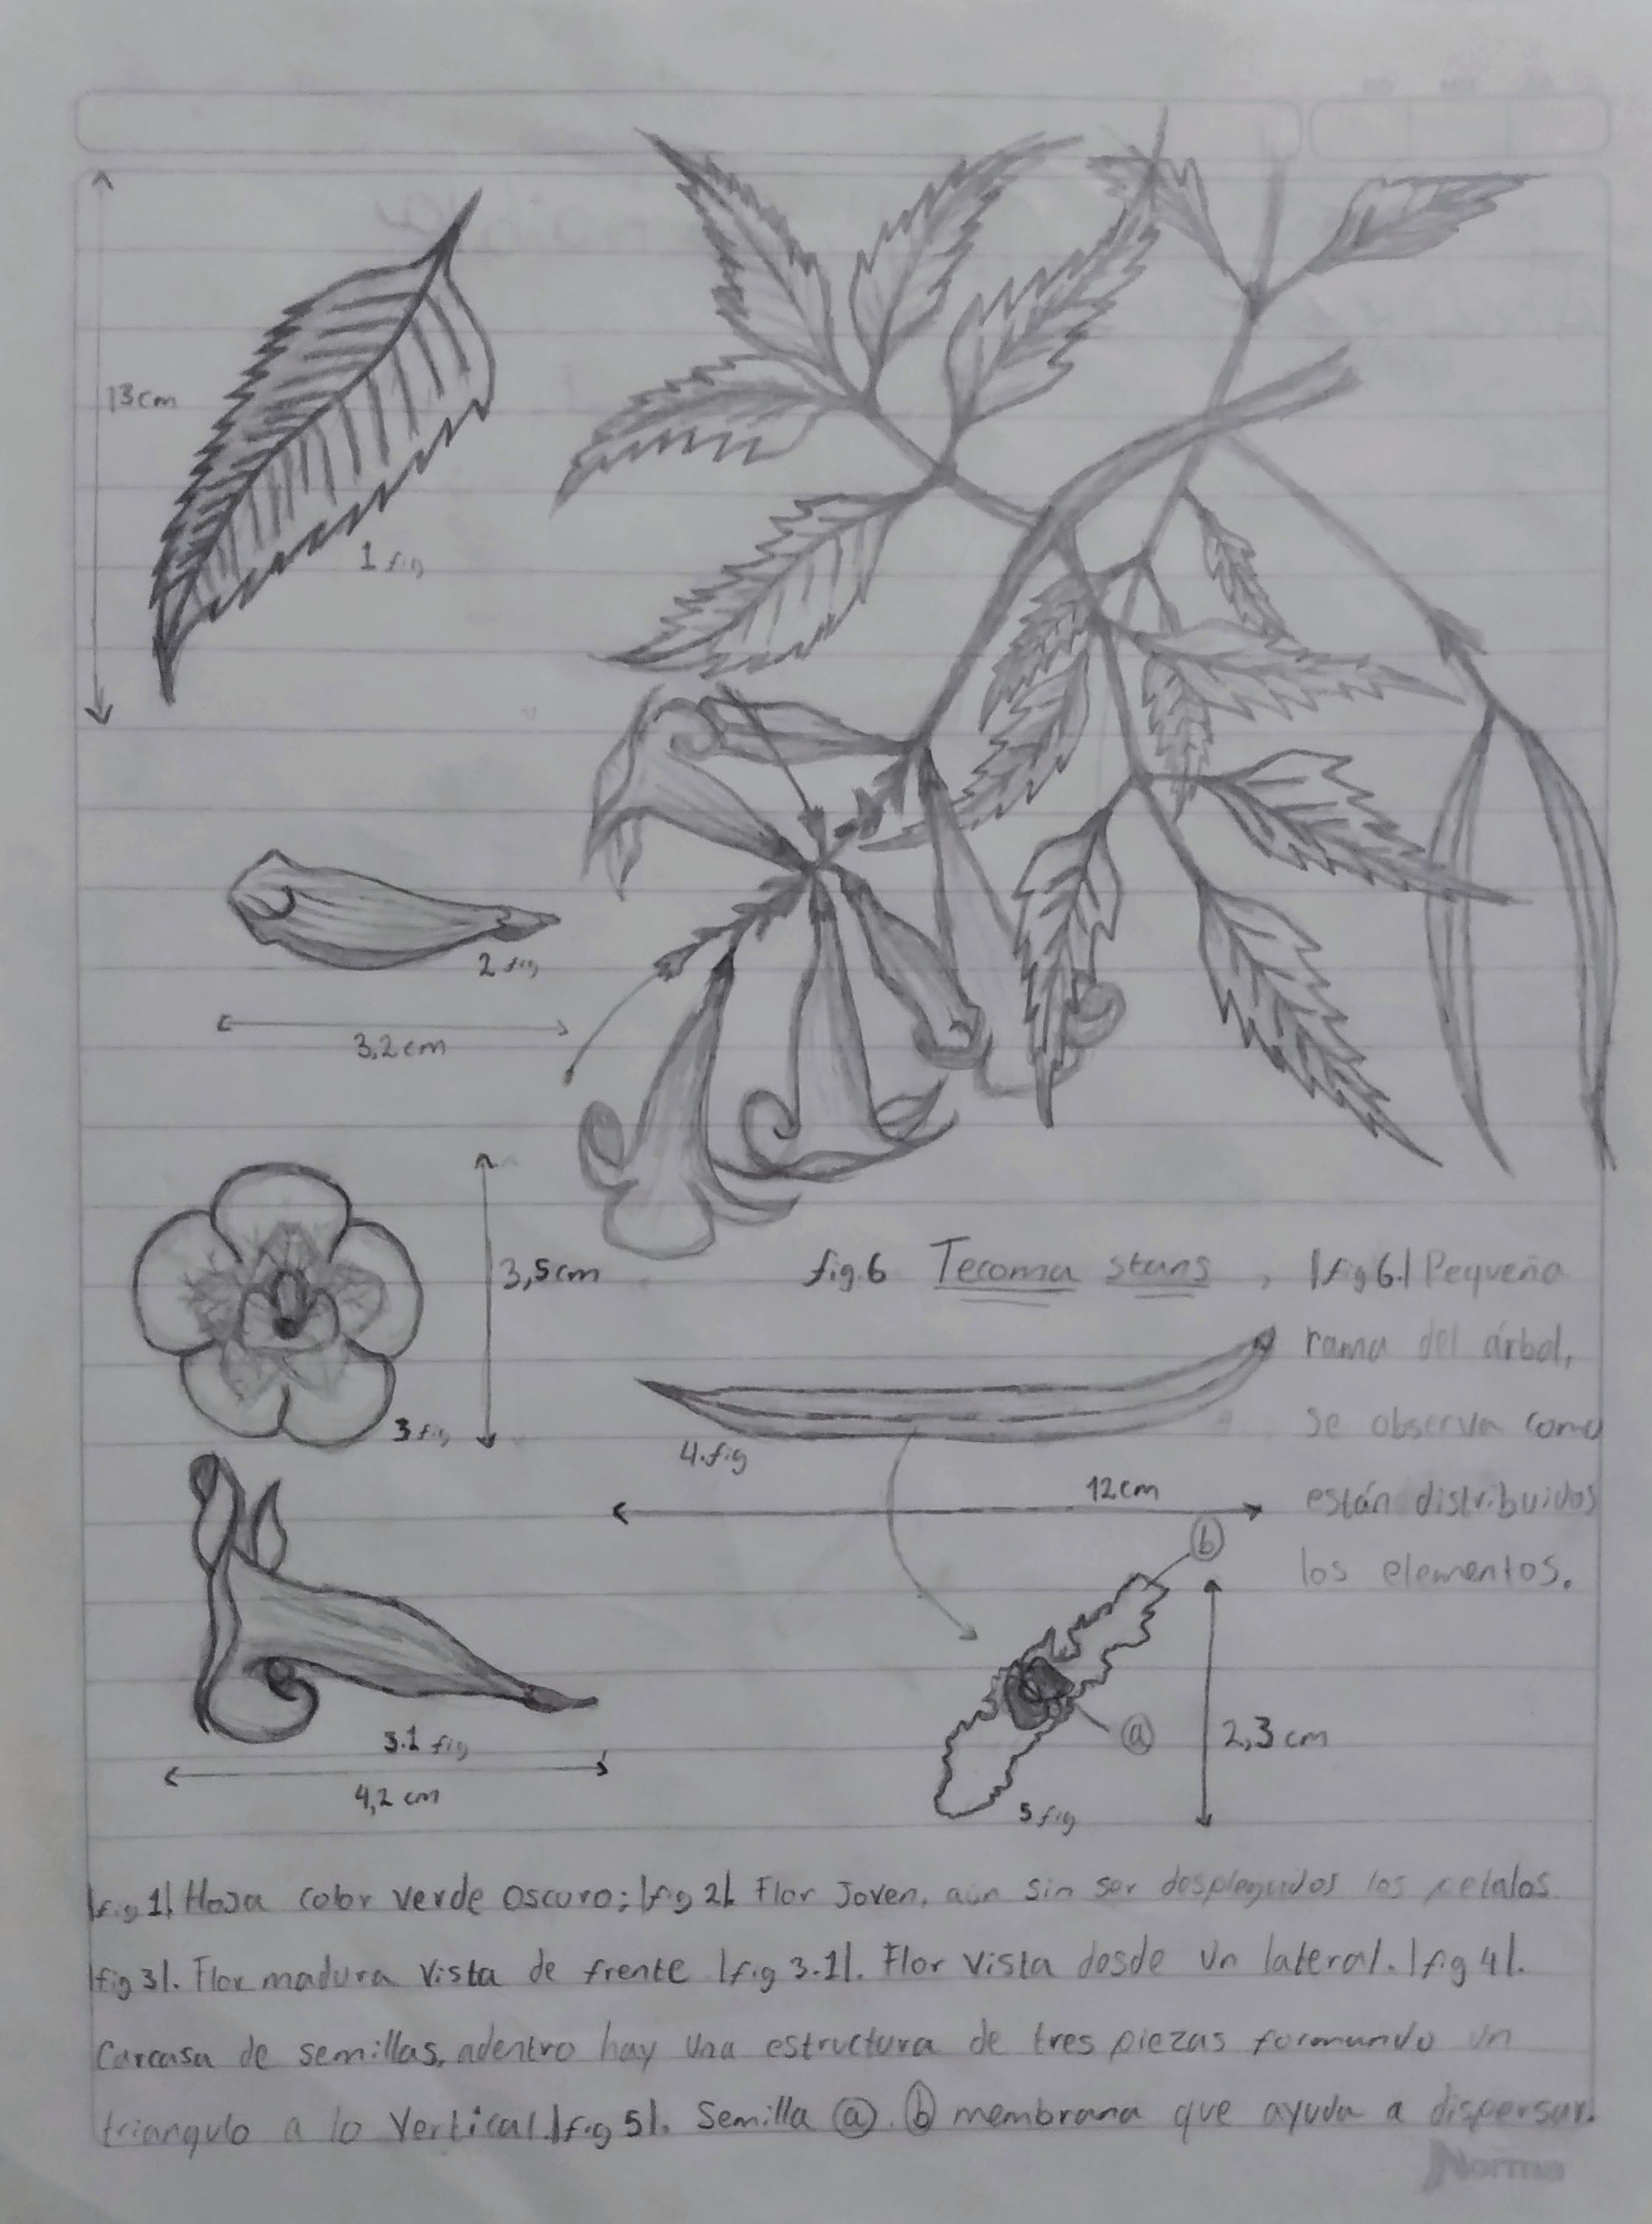 13cm
1 fig
2 fig
3,2cm
3,5cm
3 fig
fig.6 Tecoma stans , |fig 6.| Pequeña
rama del árbol,
se observa como
están distribuidos
los elementos.
4.fig
12cm
b
a
2,3 cm
5 fig
3.1 fig
4,2 cm
|fig 1| Hoja color verde oscuro; |fig 2|. Flor Joven, aún sin ser desplegados los petalos
|fig 3|. Flor madura Vista de frente |fig 3.1|. Flor Vista desde un lateral. |fig 4|.
Carcasa de semillas, adentro hay una estructura de tres piezas formando un
triangulo a lo Vertical |fig 5|. Semilla a. b membrana que ayuda a dispersar.
Norma